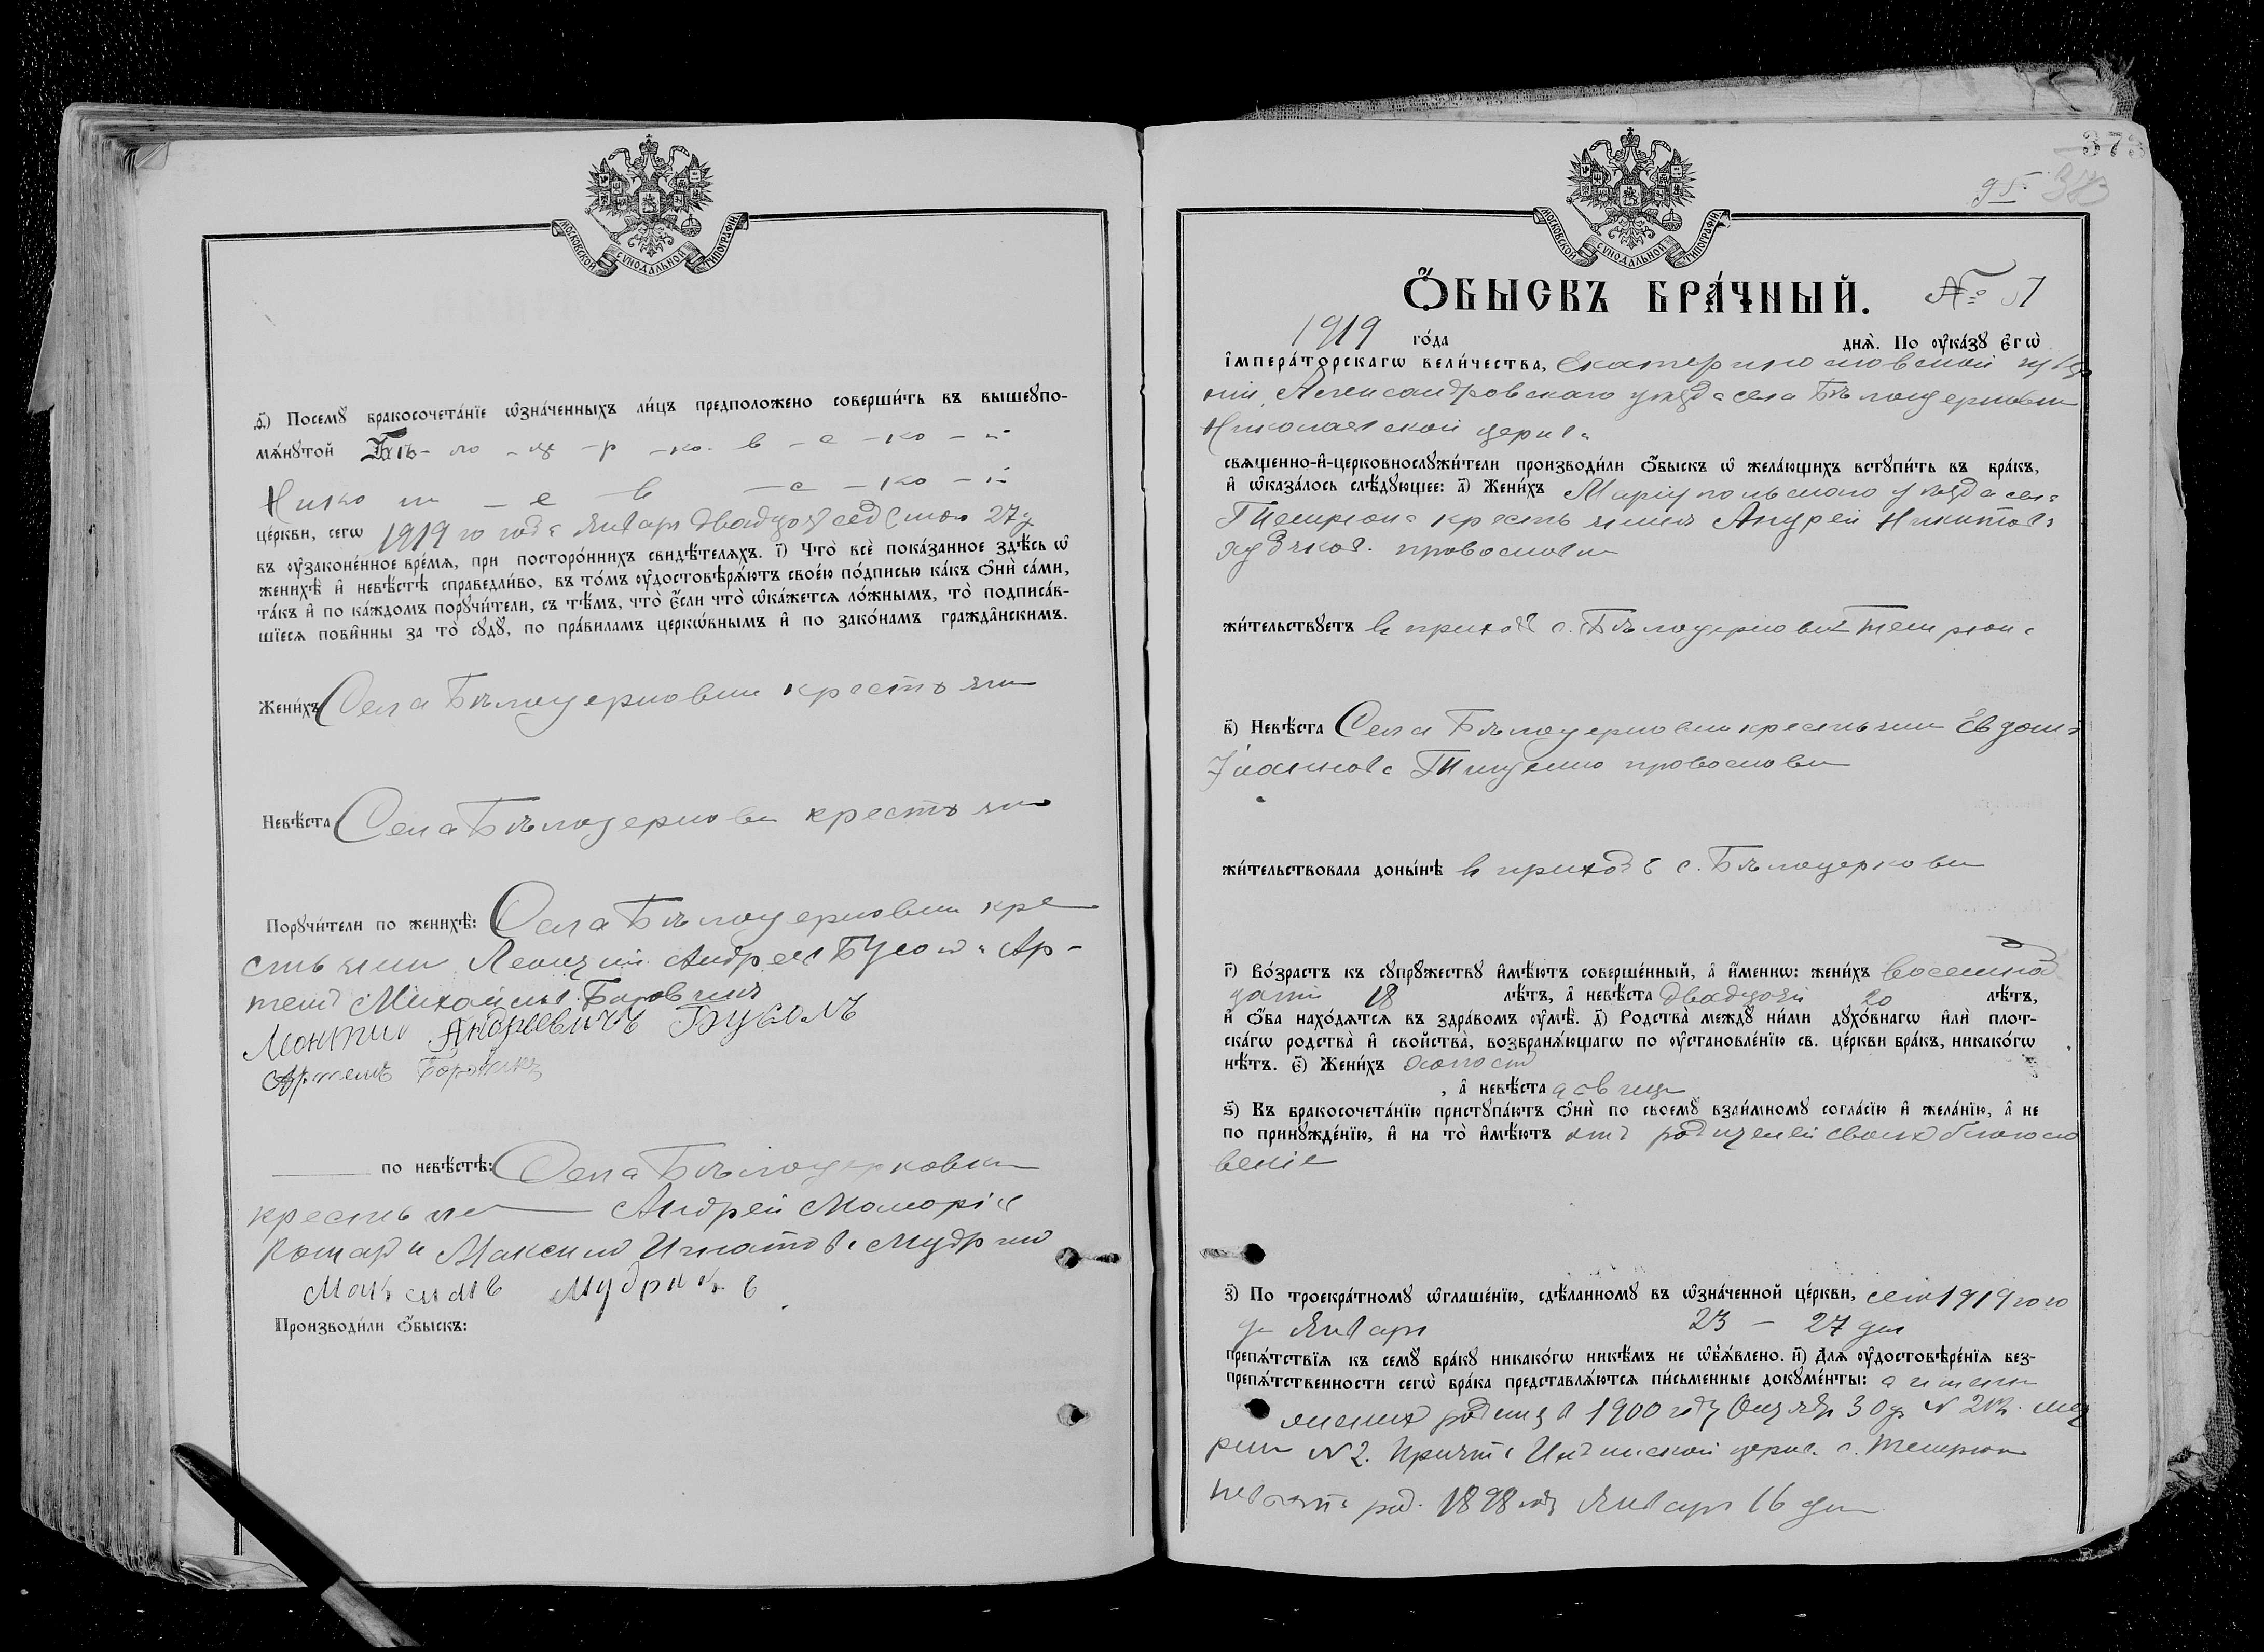 МОСКОВСКОЙ СѴНОДАЛЬНОЙ ТИПОГРАФІИ
д҃) Посемꙋ бракосочета́нїе ѡ҆зна́ченныхъ ли́цъ предположено соверши́ть въ вышеꙋпо-
мѧ́нꙋтой Бѣ- ло - це - р - ко - в - с - ко - й
Нико - ла - е - в - с - ко - й
це́ркви, сегѡ 1919 го года Января двадцать седьмого 27 д.
въ ᲂу҆законе́нное вре́мѧ, при посторо́ннихъ свидѣ́телѧхъ. і҃) Что̀ всѐ пока́занное здѣ́сь ѡ҆
женихѣ̀ и҆ невѣ́стѣ справедли́во, въ то́мъ ᲂу҆достовѣрѧ́ютъ свое́ю по́дписью ка́къ ѻ҆нѝ са́ми,
та́къ и҆ по ка́ждомъ порꙋчи́тели, съ тѣ́мъ, что̀ є҆́сли что̀ ѡ҆ка́жетсѧ ло́жнымъ, то̀ подписа́в-
шїесѧ пови́нны за то̀ сꙋдꙋ̀, по пра́виламъ церкѡ́внымъ и҆ по зако́намъ гражда́нскимъ.
Жени́хъ Села Бѣлоцерковки крестьян
Невѣ́ста Села Бѣлоцерковки крестьян
Порꙋчи́тели по женихѣ̀: Села Бѣлоцерковки кре
стьяни Леонтий Андреев и Ар-
тем Михайлов
Леонтий Андреевичъ
Артемъ
по невѣ́стѣ: Села Бѣлоцерковки
крестьяне Андрей
и Максим Игнатов Мудрик
Максимъ Мудрикъ
Производи́ли ѻ҆́быскъ:
373
95.
МОСКОВСКОЙ СѴНОДАЛЬНОЙ ТИПОГРАФІИ
Ѻ҆́БЫСКЪ БРА́ЧНЫЙ. №
1919 го́да днѧ̀. По ᲂу҆ка́зꙋ є҆гѡ̀
і҆мпера́торскагѡ вели́чества, Екатеринославской губер
нии Александровскаго уезда села Бѣлоцерковки
Николаевской церкв.
свѧще́нно-и҆-церковнослꙋжи́тели производи́ли ѻ҆́быскъ ѡ҆ жела́ющихъ встꙋпи́ть въ бра́къ,
и҆ ѡ҆каза́лось слѣ́дꙋющее: а҃) Жени́хъ Мариупольского уезда села
Темрюка крестьянин Андрей Никитов
православн
жи́тельствꙋетъ в приходѣ с. Бѣлоцерковки Темрюк
в҃) Невѣ́ста Села Бѣлоцерковки крестьянк Евдоки
Тищенко православн
жи́тельствовала доны́нѣ в приходѣ с. Бѣлоцерковки
г҃) Во́зрастъ къ сꙋпрꙋжествꙋ и҆мѣ́ютъ соверше́нный, а҆ и҆́меннѡ: жени́хъ восемнад
цати 18 лѣ́тъ, а҆ невѣ́ста двадцати 20 лѣ́тъ,
и҆ ѻ҆́ба нахо́дѧтсѧ въ здра́вомъ ᲂу҆мѣ̀. д҃) Родства̀ междꙋ̀ ни́ми дꙋхо́внагѡ и҆лѝ плот-
ска́гѡ родства̀ и҆ сво́йства̀, возбранѧ́ющагѡ по ᲂу҆становле́нїю св. це́ркви бра́къ, никако́гѡ
нѣ́тъ. є҃) Жени́хъ холост
, а҆ невѣ́ста девица
ѕ҃) Въ бракосочета́нїю пристꙋпа́ютъ ѻ҆нѝ по своемꙋ̀ взаи́мномꙋ согла́сїю и҆ жела́нїю, а҆ не
по принꙋжде́нїю, и҆ на то̀ и҆мѣ́ютъ отъ родителей своих благосло
вение
з҃) По троекра́тномꙋ ѡ҆глаше́нїю, сдѣ́ланномꙋ въ ѡ҆зна́ченной це́ркви, сего 1919 го го
да Января 23 — 27 дня
препѧ́тствїѧ къ семꙋ̀ бра́кꙋ никако́гѡ никѣ́мъ не ѡ҆б̾ѧ́влено. и҃) Длѧ ᲂу҆достовѣре́нїѧ без-
препѧ́тственности сегѡ̀ бра́ка представлѧ́ютсѧ пи́сьменные докꙋме́нты: а именно
жених родился 1900 году Октября 30 д. мет
рики № 2. Причта церкв. с. Темрюк
невеста род. 1898 году Января 16 дня